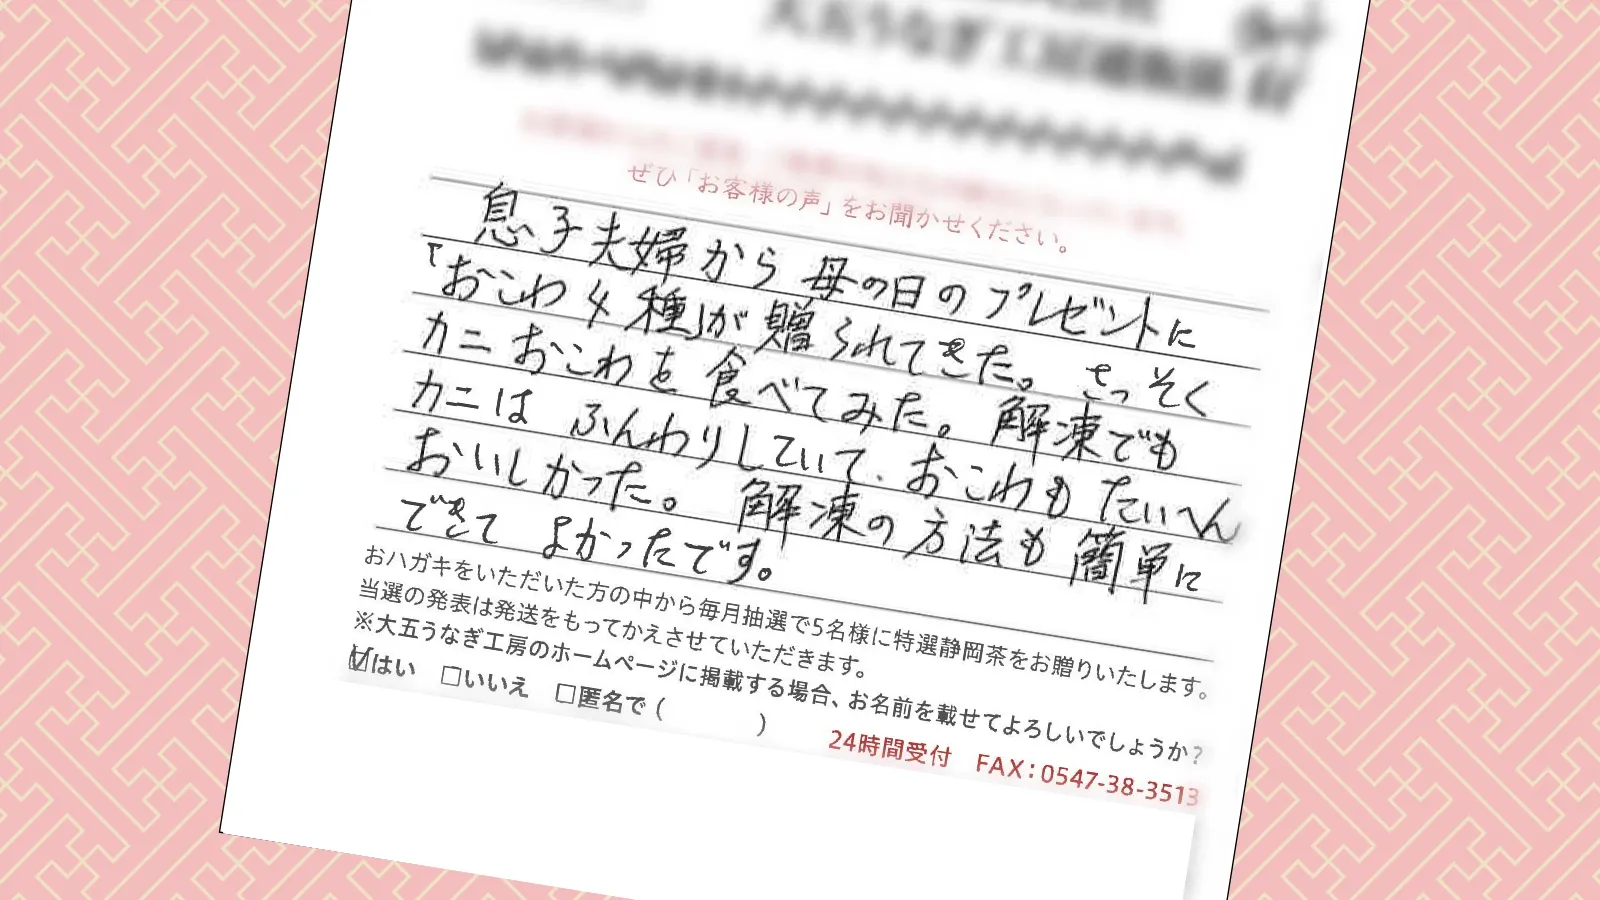 大五うなぎ工房通販係 行
ぜひ「お客様の声」をお聞かせください。
息子夫婦から 母の日のプレゼントに
「おこわ4種」が贈られてきた。さっそく
カニおこわを食べてみた。解凍でも
カニは ふんわりしていて、おこわもたいへん
おいしかった。解凍の方法も簡単に
できて よかったです。
おハガキをいただいた方の中から毎月抽選で5名様に特選静岡茶をお贈りいたします。
当選の発表は発送をもってかえさせていただきます。
※大五うなぎ工房のホームページに掲載する場合、お名前を載せてよろしいでしょうか?
☑はい □いいえ □匿名で( )
24時間受付 FAX:0547-38-3513